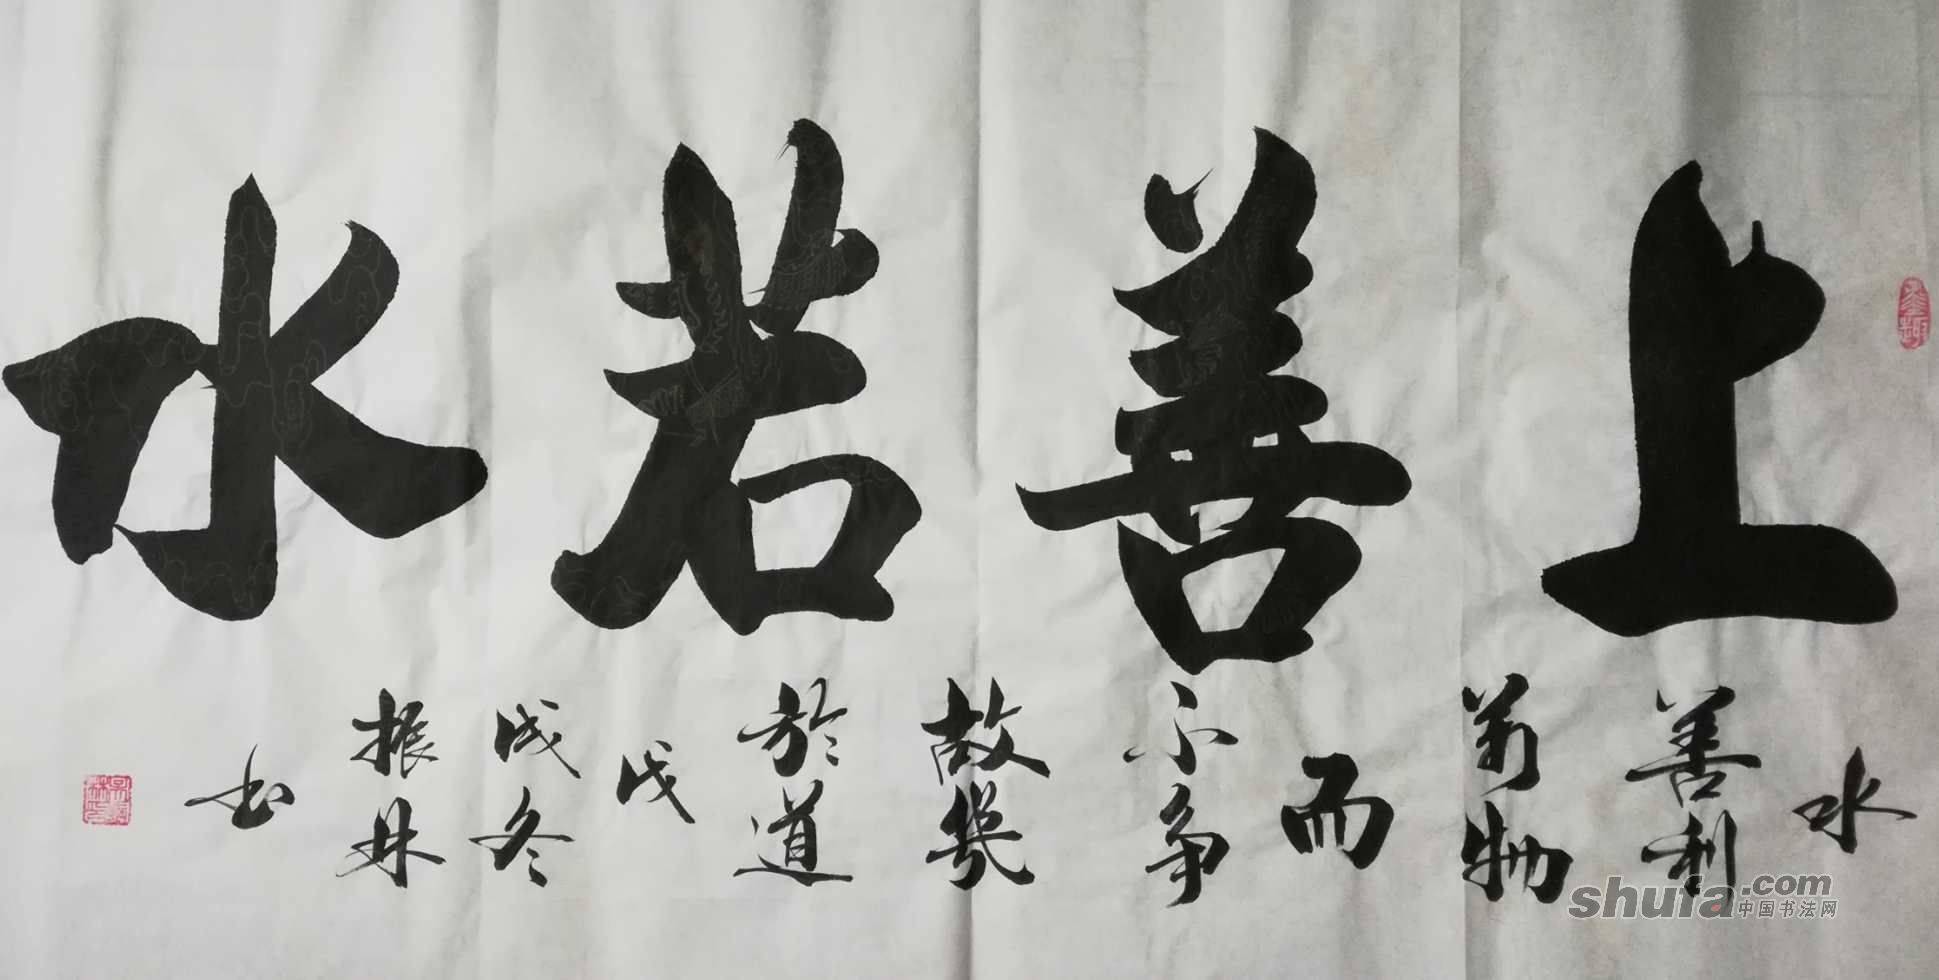 上善若水
水善利萬物而不争故幾於道戊戌冬振林书
shufa.com
中国书法网